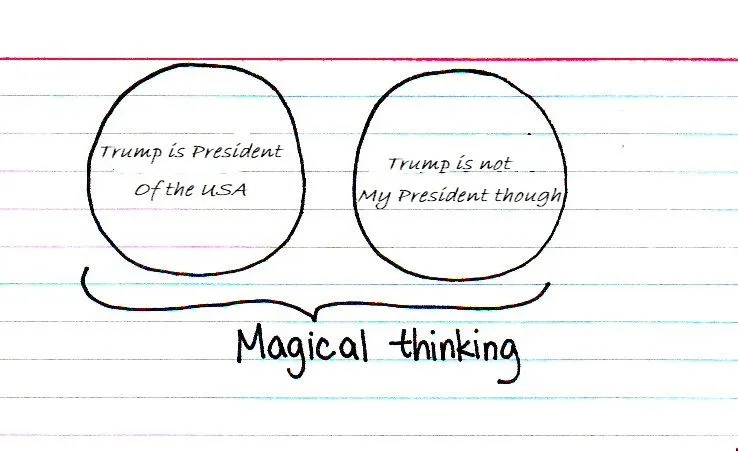 Trump is President
Of the USA
Trump is not
My President though
Magical thinking